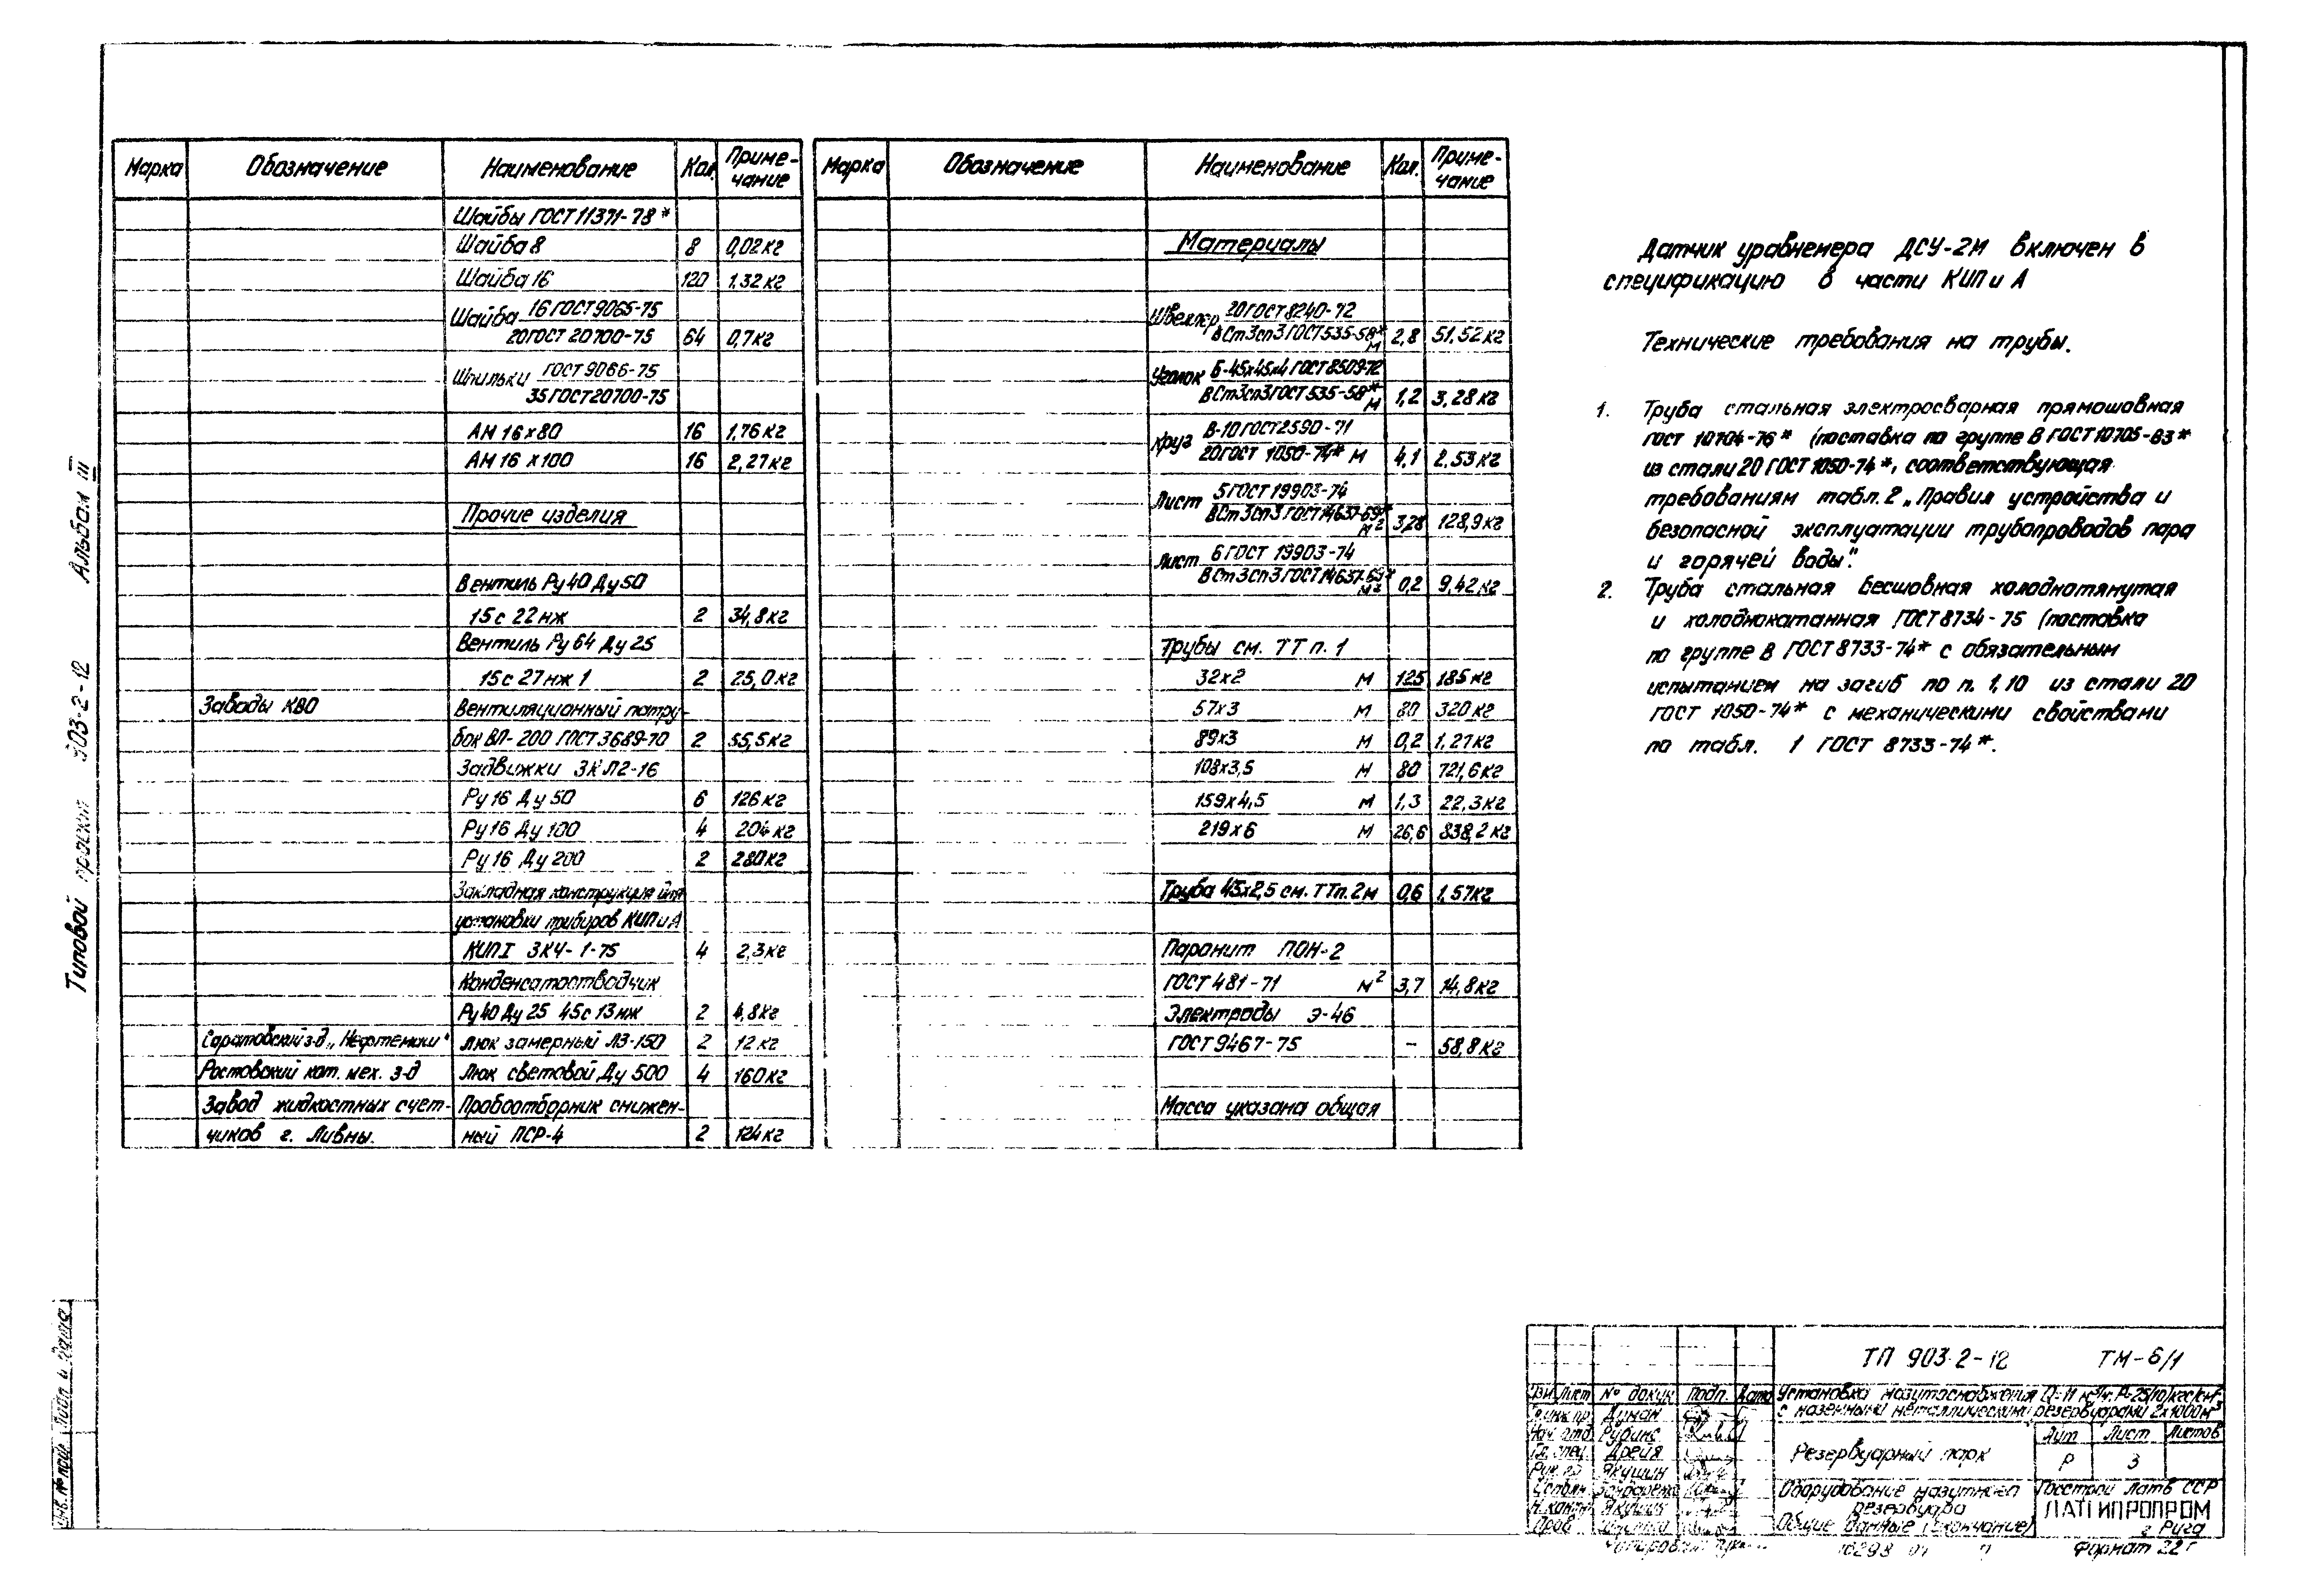 Марка Обозначение Наименование Кол. Приме-
чание
Шайбы ГОСТ 11371-78*
Шайба 8 8 0,02кг
Шайба 16 120 1.32кг
Шайба 16 ГОСТ 9065-75
20 ГОСТ 20700-75 64 0,7кг
Шпильки ГОСТ 9066-75
35 ГОСТ 20700-75
АМ 16х80 16 1,76кг
АМ 16 х100 16 2,27кг
Прочие изделия
Вентиль Ру 40 Ду 50
15с 22нж 2 34,8кг
Вентиль Ру 64 Ду 25
15с 27нж 1 2 25,0кг
Заводы КВО Вентиляционный патру-
бок ВП-200 ГОСТ 3689-70 2 55,5кг
Задвижки ЗКЛ2-16
Ру 16 Ду 50 6 126кг
Ру 16 Ду 100 4 204кг
Ру 16 Ду 200 2 280кг
Закладная конструкция для
установки приборов КИП и А
КИП I ЗКЧ-1-75 4 2,3кг
Конденсатоотводчик
Ру 40 Ду 25 45с 13нж 2 4,8кг
Саратовский з-д „Нефтемаш" Люк замерный ЛЗ-150 2 12кг
Ростовский кот. мех. з-д Люк световой Ду 500 4 160кг
Завод жидкостных счет- Пробоотборник снижен-
чиков г. Ливны. ный ПСР-4 2 124кг
Марка Обозначение Наименование Кол. Приме-
чание
Материалы
Швеллер 20 ГОСТ 8240-72
ВСт3сп3 ГОСТ 535-58* м 2,8 51,52кг
Уголок Б-45х45х4 ГОСТ 8509-72
ВСт3сп3 ГОСТ 535-58* м 1,2 3,28кг
Круг В-10 ГОСТ 2590-71
20 ГОСТ 1050-74* м 4,1 2,53кг
Лист 5 ГОСТ 19903-74
ВСт3сп3 ГОСТ 14637-69* м² 3,28 128,9кг
Лист 6 ГОСТ 19903-74
ВСт3сп3 ГОСТ 14637-69* м² 0,2 9,42кг
Трубы см. ТТ п. 1
32х2 м 125 185кг
57х3 м 80 320кг
89х3 м 0,2 1,27кг
108х3,5 м 80 721,6кг
159х4,5 м 1,3 22,3кг
219х6 м 26,6 838,2кг
Труба 45х2,5 см. ТТ п. 2 м 0,6 1,57кг
Паронит ПОН-2
ГОСТ 481-71 м² 3,7 14,8кг
Электроды Э-46
ГОСТ 9467-75 – 58,8кг
Масса указана общая
Датчик уравнемера ДСУ-2М включен в
спецификацию в части КИП и А
Технические требования на трубы.
1. Труба стальная электросварная прямошовная
ГОСТ 10704-76* (поставка по группе В ГОСТ 10705-63*
из стали 20 ГОСТ 1050-74*, соответствующая
требованиям табл. 2 „Правил устройства и
безопасной эксплуатации трубопроводов пара
и горячей воды".
2. Труба стальная бесшовная холоднотянутая
и холоднокатанная ГОСТ 8734-75 (поставка
по группе В ГОСТ 8733-74* с обязательным
испытанием на загиб по п. 1,10 из стали 20
ГОСТ 1050-74* с механическими свойствами
по табл. 1 ГОСТ 8733-74*.
Типовой проект 903-2-12 Альбом III
Инв. № подл. Подп. и дата
ТП 903-2-12 ТМ-6/1
Изм. Лист № докум. Подп. Дата
Установка мазутоснабжения Q=11 м³/ч. Р=25(10)кгс/см²
с наземными металлическими резервуарами 2х1000м³
Гл. инж. пр. Думан
Нач. отд. Рудинс
Гл. спец. Дрейя
Рук. гр. Якушин
Исполн.
Н. контр. Якушин
Пров.
Резервуарный парк
Лит Лист Листов
Р 3
Оборудование мазутного
резервуара
Общие данные (окончание)
Госстрой Латв ССР
ЛАТГИПРОПРОМ
г. Рига
Копировал
Формат 22г